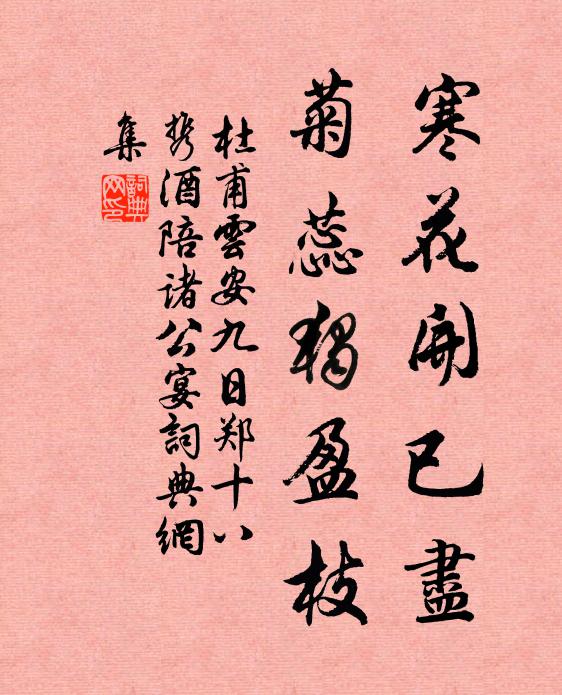 寒花開已盡
菊蕊獨盈枝
杜甫雲安九日郑十八
携酒陪诸公宴詞典網
集
詞典网印